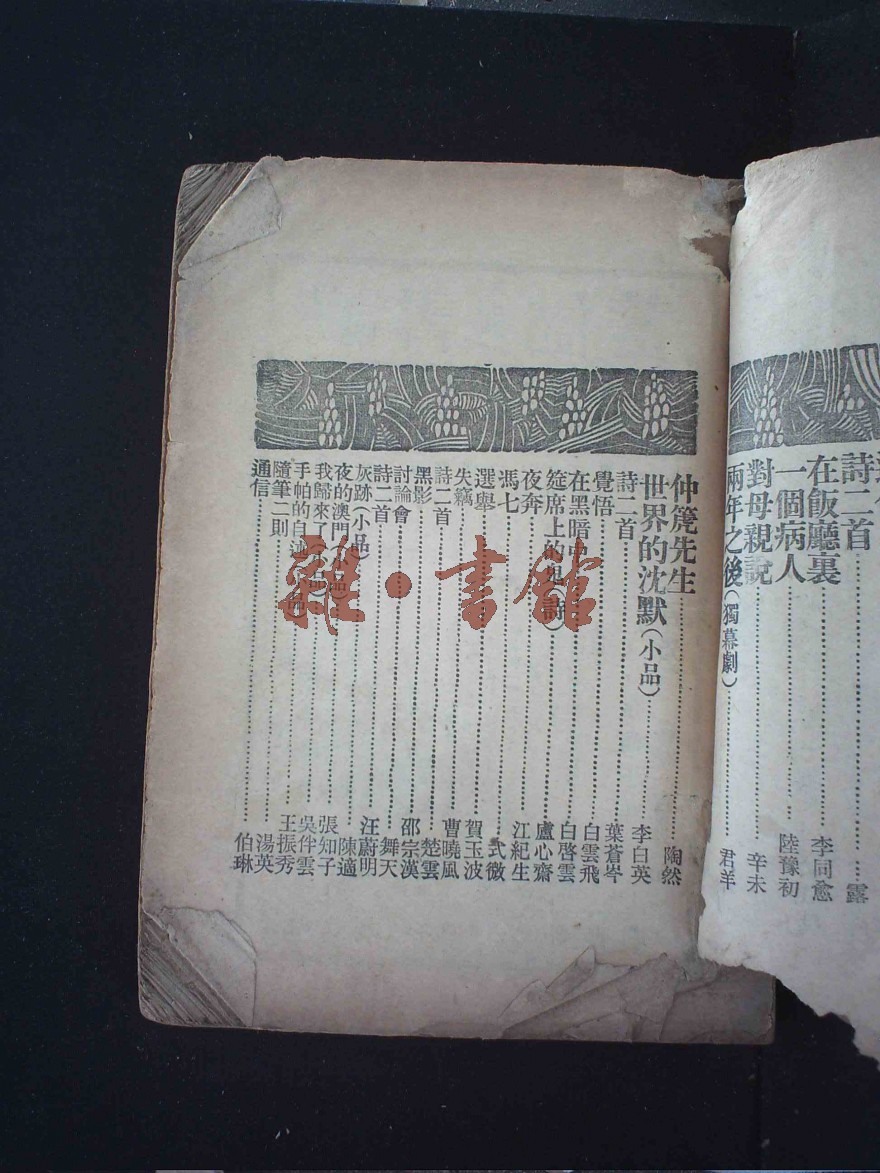 詩二首……………露
在飯廳裏……………李同愈
一個病人……………陸豫初
對母親說……………辛未
兩年之後(獨幕劇)……………君羊
仲篪先生……………陶然
世界的沈默(小品)……………李白英
詩二首……………葉蒼岑
覺悟……………白雲飛
在黑暗中……………白啓雲
筵席上的鬼(詩)……………盧心齋
夜奔……………江紀生
馮七……………式微
選舉……………賀玉波
失竊……………曹曉風
詩二首……………楚雲
黑影……………邵宗漢
討論會……………舞天
詩二首……………汪蔚明
灰跡(小品)……………陳適
夜的澳門(小品)……………張知子
我歸來了(小品)……………吳伴雲
手帕的自述(小品)……………王振秀
隨筆二則……………湯英
通信……………伯琳
雜·書館